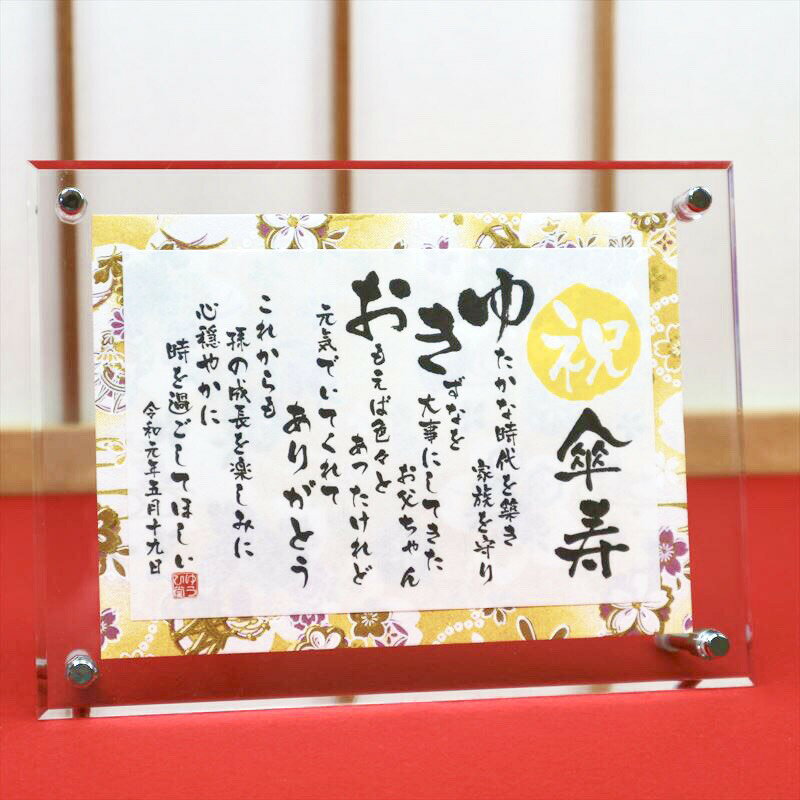 祝
傘寿
ゆたかな時代を築き
家族を守り
きずなを
大事にしてきた
お父ちゃん
おもえば色々と
あったけれど
元気でいてくれて
ありがとう
これからも
孫の成長を楽しみに
心穏やかに
時を過ごしてほしい
令和元年五月十九日